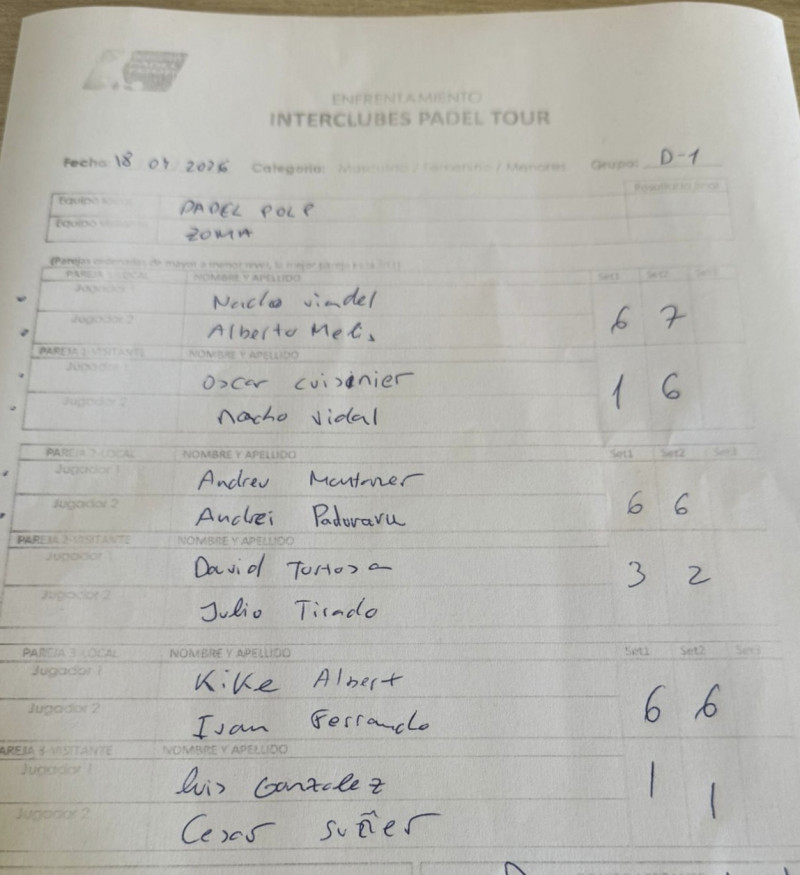 ENFRENTAMIENTO
INTERCLUBES PADEL TOUR
Fecha: 18 04 2026 Categoria: Masculino / Femenino / Menores Grupo: D-1
Equipo local PADEL POLP Resultado final
Equipo visitante ZOMA
PAREJA 1-LOCAL NOMBRE Y APELLIDO Set1 Set2 Set3
Jugador 1 Nacho viadel
Jugador 2 Alberto Melis 6 7
PAREJA 1-VISITANTE NOMBRE Y APELLIDO
Jugador 1 Oscar cuisinier 1 6
Jugador 2 nacho vidal
PAREJA 2-LOCAL NOMBRE Y APELLIDO Set1 Set2 Set3
Jugador 1 Andreu
Jugador 2 Andrei Paduraru 6 6
PAREJA 2-VISITANTE NOMBRE Y APELLIDO
Jugador 1 David Tortosa 3 2
Jugador 2 Julio Tirado
PAREJA 3-LOCAL NOMBRE Y APELLIDO Set1 Set2 Set3
Jugador 1 Kike Albert
Jugador 2 Ivan Ferrando 6 6
PAREJA 3-VISITANTE NOMBRE Y APELLIDO
Jugador 1 luis Gonzalez 1 1
Jugador 2 Cesar suñer